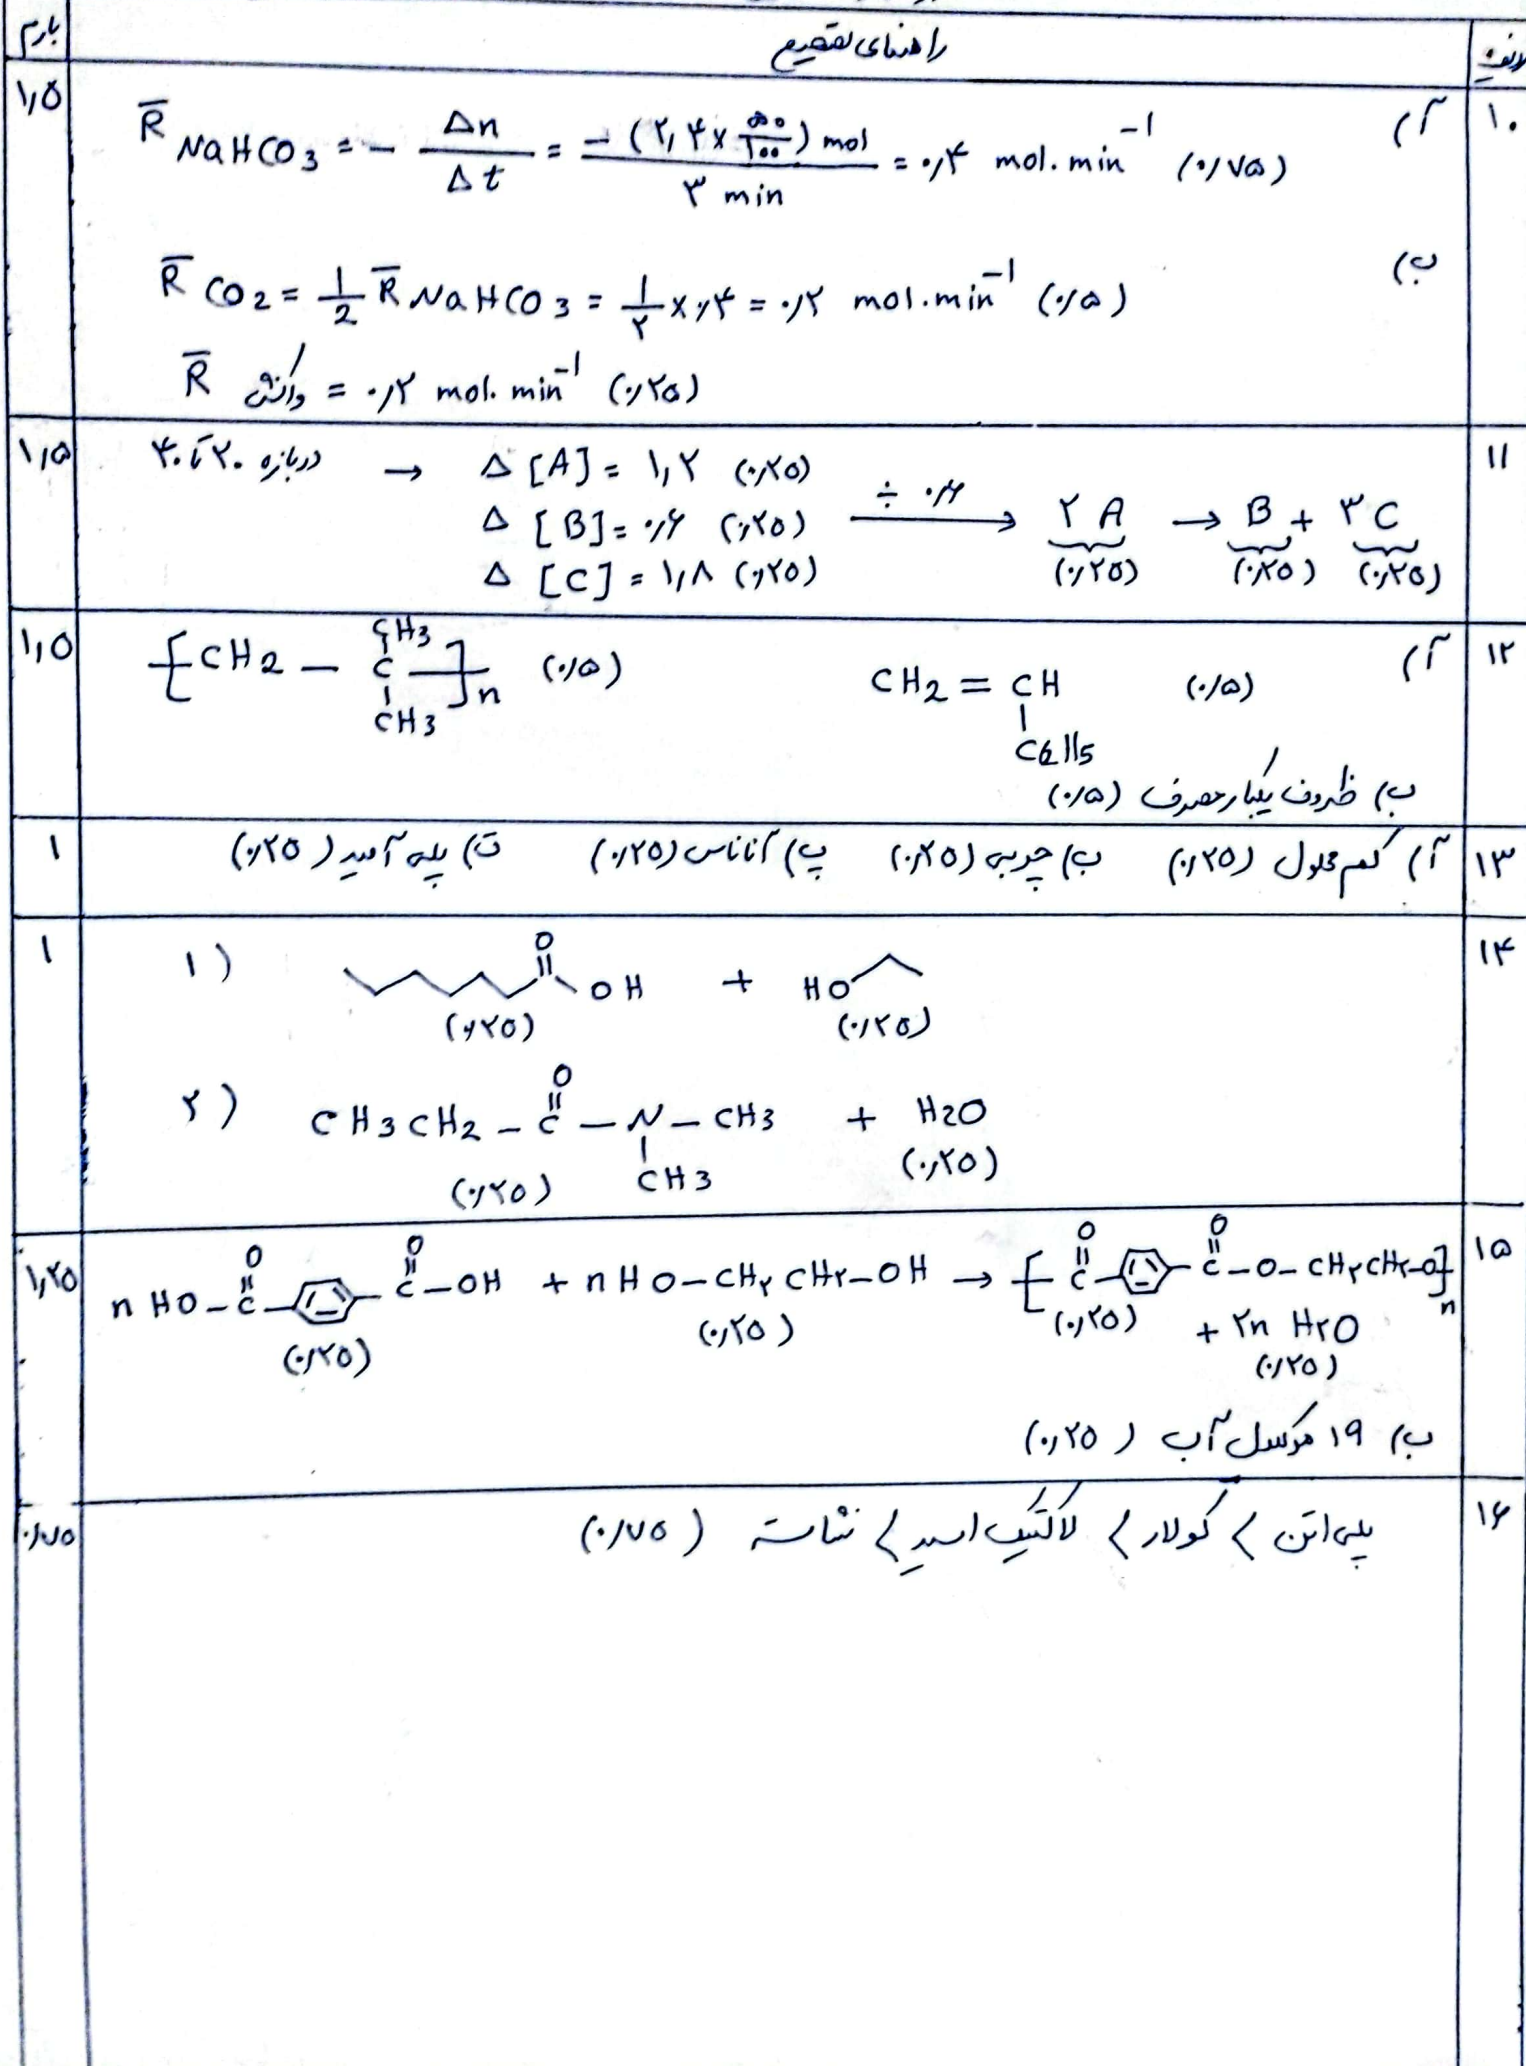 ردیف راهنمای تصحیح بارم
۱۰ آ) R̄ NaHCO3 = - Δn/Δt = -(۲,۴ × ۵۰/۱۰۰) mol / ۳ min = ۰,۴ mol. min⁻¹ (۰/۷۵) ۱,۵
ب) R̄ CO2 = 1/2 R̄ NaHCO3 = 1/۲ × ,۴ = ۰,۲ mol.min⁻¹ (۰/۵)
R̄ واکنش = ۰,۲ mol. min⁻¹ (۰,۲۵)
۱۱ در بازه ۲۰ تا ۴۰ → Δ [A] = ۱,۲ (۰,۲۵) ۱,۵
Δ [B] = ۰,۶ (۰,۲۵) ÷ ۰,۶ → ۲ A → B + ۳ C
Δ [C] = ۱,۸ (۰,۲۵) (۰,۲۵) (۰,۲۵) (۰,۲۵)
۱۲ آ) CH2 = CH (۰/۵) ۱,۵
C6H5
CH3
[CH2 — C]n (۰/۵)
CH3
ب) ظروف یکبار مصرف (۰/۵)
۱۳ آ) کم محلول (۰,۲۵) ب) چربی (۰,۲۵) پ) آناناس (۰,۲۵) ت) پلی آمید (۰,۲۵) ۱
۱۴ ۱
۱) O
OH + HO
(۰,۲۵) (۰,۲۵)
۲) O
CH3CH2 – C – N – CH3 + H2O
CH3
(۰,۲۵) (۰,۲۵)
۱۵ ۱,۲۵
O O O O
n HO – C – C – OH + n HO – CH۲ CH۲ – OH → [C – C – O – CH۲CH۲ – O]n
(۰,۲۵) (۰,۲۵) (۰,۲۵) + ۲n H۲O
(۰,۲۵)
ب) ۱۹ مولکول آب (۰,۲۵)
۱۶ پلی اتن > کولار > لاکتیک اسید > نشاسته (۰/۷۵) ۰/۷۵